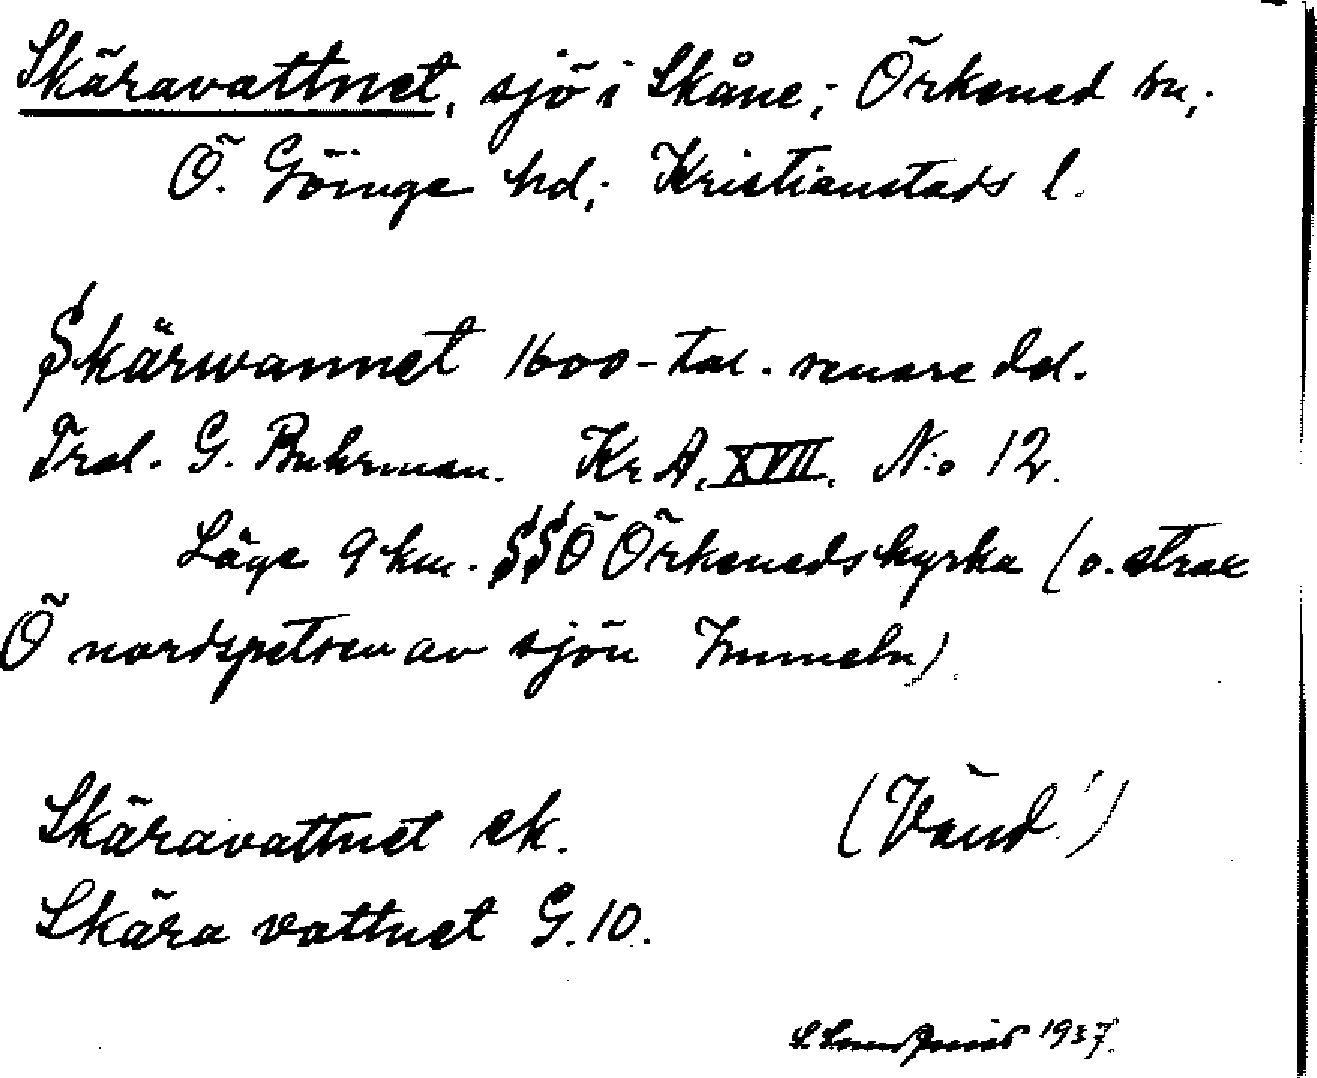 Skäravattnet, sjö i Skåne; Örkened sn,
Ö. Göinge hd; Kristianstads l.
Skärwannet 1600-tal. senare del.
Trol. G. Buhrman. Kr A. XVII. N:o 12.
Läge 9 km. SSÖ Örkenedskyrka (o. strax
Ö nordspetsen av sjön Immeln)
Skäravattnet ek. (Vänd!)
Skära vattnet G. 10.
1937.